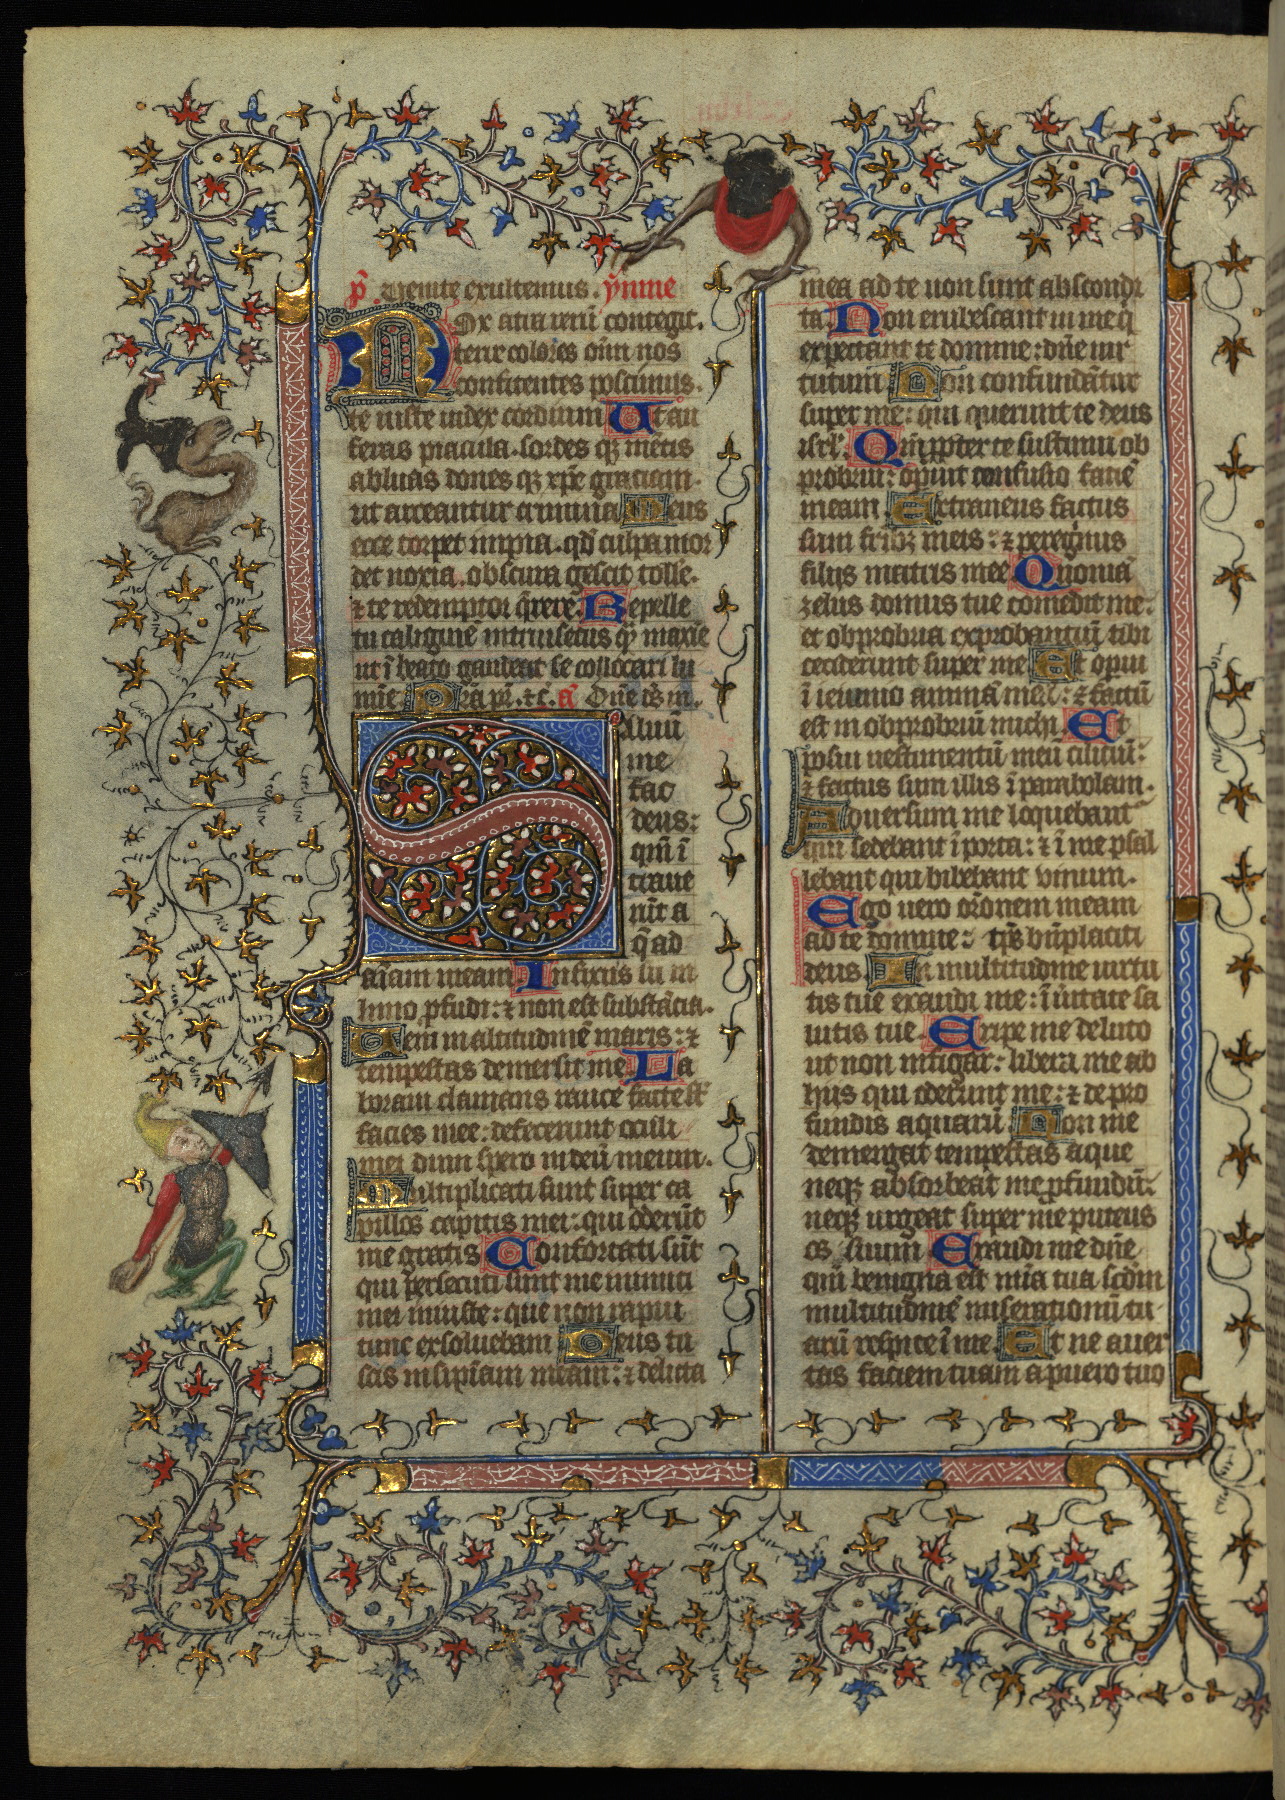 p̄. venite exultemus. ymne
Nox atra rerū contegit.
terre colores om̄ nos
confitentes poscimus.
te iuste iudex cordium Ut au
feras piacula. sordes qꝫ mētis
abluas dones qꝫ xp̄e graciam.
ut arceantur crimina Mens
ecce torpet impia. qd̄ culpa mor
det noxia. obscura gestit tolle.
⁊ te redemptor q̄rere. Repelle
tu caliginē intrinsecus qꝫ maxīe
ut ī beato gaudeat se collocari lu
mīe Pr̄a pr̄. ⁊c. a͂ Dn̄e d̄s in.
Saluū
me
fac
deus:
qm̄ ī
traue
rūt a
q̄ ad
aīam meam Infixus sū in
limo ꝓfūdi: ⁊ non est substācia.
Ueni in altitudinē maris: ⁊
tempestas demersit me. La
boraui clamans rauce facte sūt
fauces mee: defecerunt oculi
mei dum spero in deū meum.
Multiplicati sunt super ca
pillos capitis mei: qui oderūt
me gratis Confortati sūt
qui persecuti sunt me inimici
mei iniuste: que non rapui
tunc exsoluebam Deus tu
scis insipiam meam: ⁊ delicta
mea ad te non sunt abscondi
ta. Non erubescant in me q̄
expectant te domine: dn̄e uir
tutum Non confundātur
super me: qui querunt te deus
isrl̄. Qm̄ ꝓpter te sustinui ob
probriū: oꝑuit confusio faciē
meam Extraneus factus
sum frībꝫ meis: ⁊ peregrinus
filiis matris mee Quoniā
zelus domus tue comedit me:
et obprobria exprobantiū tibi
ceciderunt super me Et operui
ī ieiunio animā meā: ⁊ factū
est in obprobriū michi. Et
posui uestimentū meū ciliciū:
⁊ factus sum illis ī parabolam.
Aduersum me loquebant̄
qui sedebant ī porta: ⁊ ī me psal
lebant qui bibebant vinum.
Ego uero or̄onem meam
ad te domine: tp̄s bn̄placiti
deus. In multitudine uirtu
tis tue exaudi me: ī ūitate sa
lutis tue. Eripe me de luto
ut non infigar: libera me ab
hiis qui oderunt me: ⁊ de pro
fundis aquarū Non me
demergat tempestas aque
neqꝫ absorbeat me ꝓfundū:
neqꝫ urgeat super me puteus
os suum Exaudi me dn̄e
qm̄ benigna est mīa tua scdm̄
multitudinē miserationū tu
arū respice ī me. Et ne auer
tas faciem tuam a puero tuo